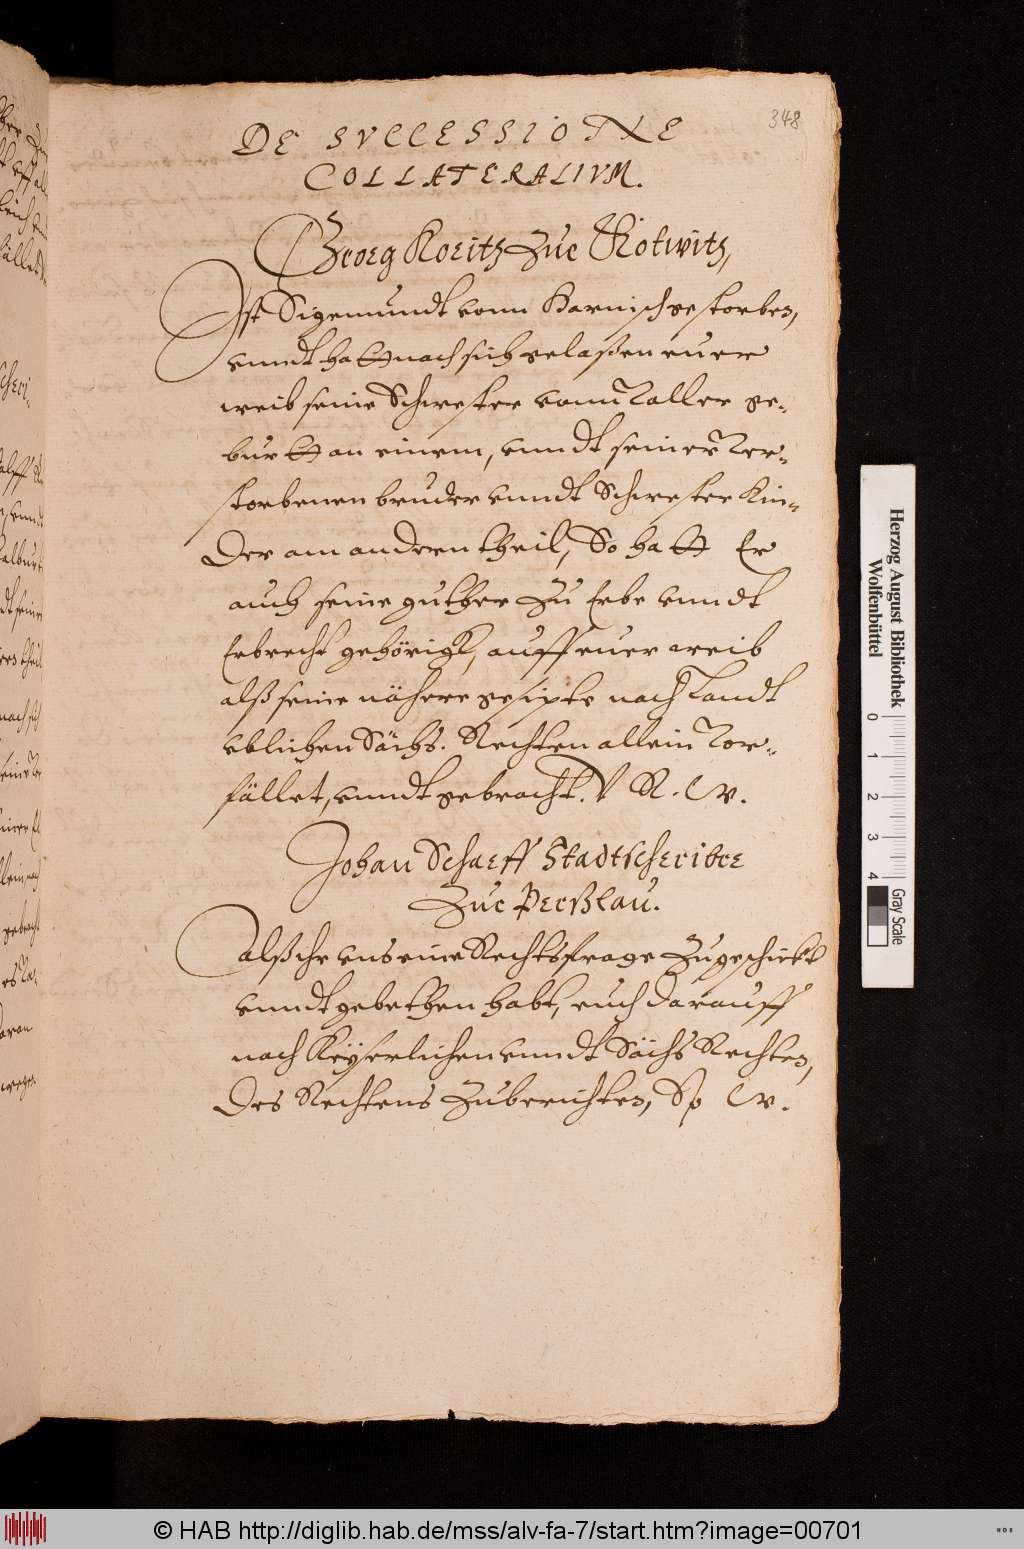 348
DE SVCCESSIONE
COLLATERALIVM.
Georg Koritz zue Rotwitz,
Ist Sigemundt vonn Harnisch gestorben,
vnndt hatt nach sich gelaßen euer
weib seine Schwester vonn voller ge-
burtt an einem, vnndt seiner ver-
storbenen bruder vnndt Schwester Kin-
der am andern theil, So hatt Er
auch seine gutther zu Erbe vnndt
Erbrecht gehörigk, auff euer weib
alß seine nähere gesipte nach Landt
vblichen Sächs. Rechten allein vor-
fället, vnndt gebracht. V R. W.
Johan Scharff Stadtschreiber
zue Perßlau.
alß ihr vns eine Rechtsfrage zugeschickt
vnndt gebethen habt, euch darauff
nach Keyserlichen vnndt Sächs Rechten,
des Rechtens zuberichten, Sp W.
Herzog August Bibliothek
Wolfenbüttel
0 1 2 3 4
Gray Scale
© HAB http://diglib.hab.de/mss/alv-fa-7/start.htm?image=00701